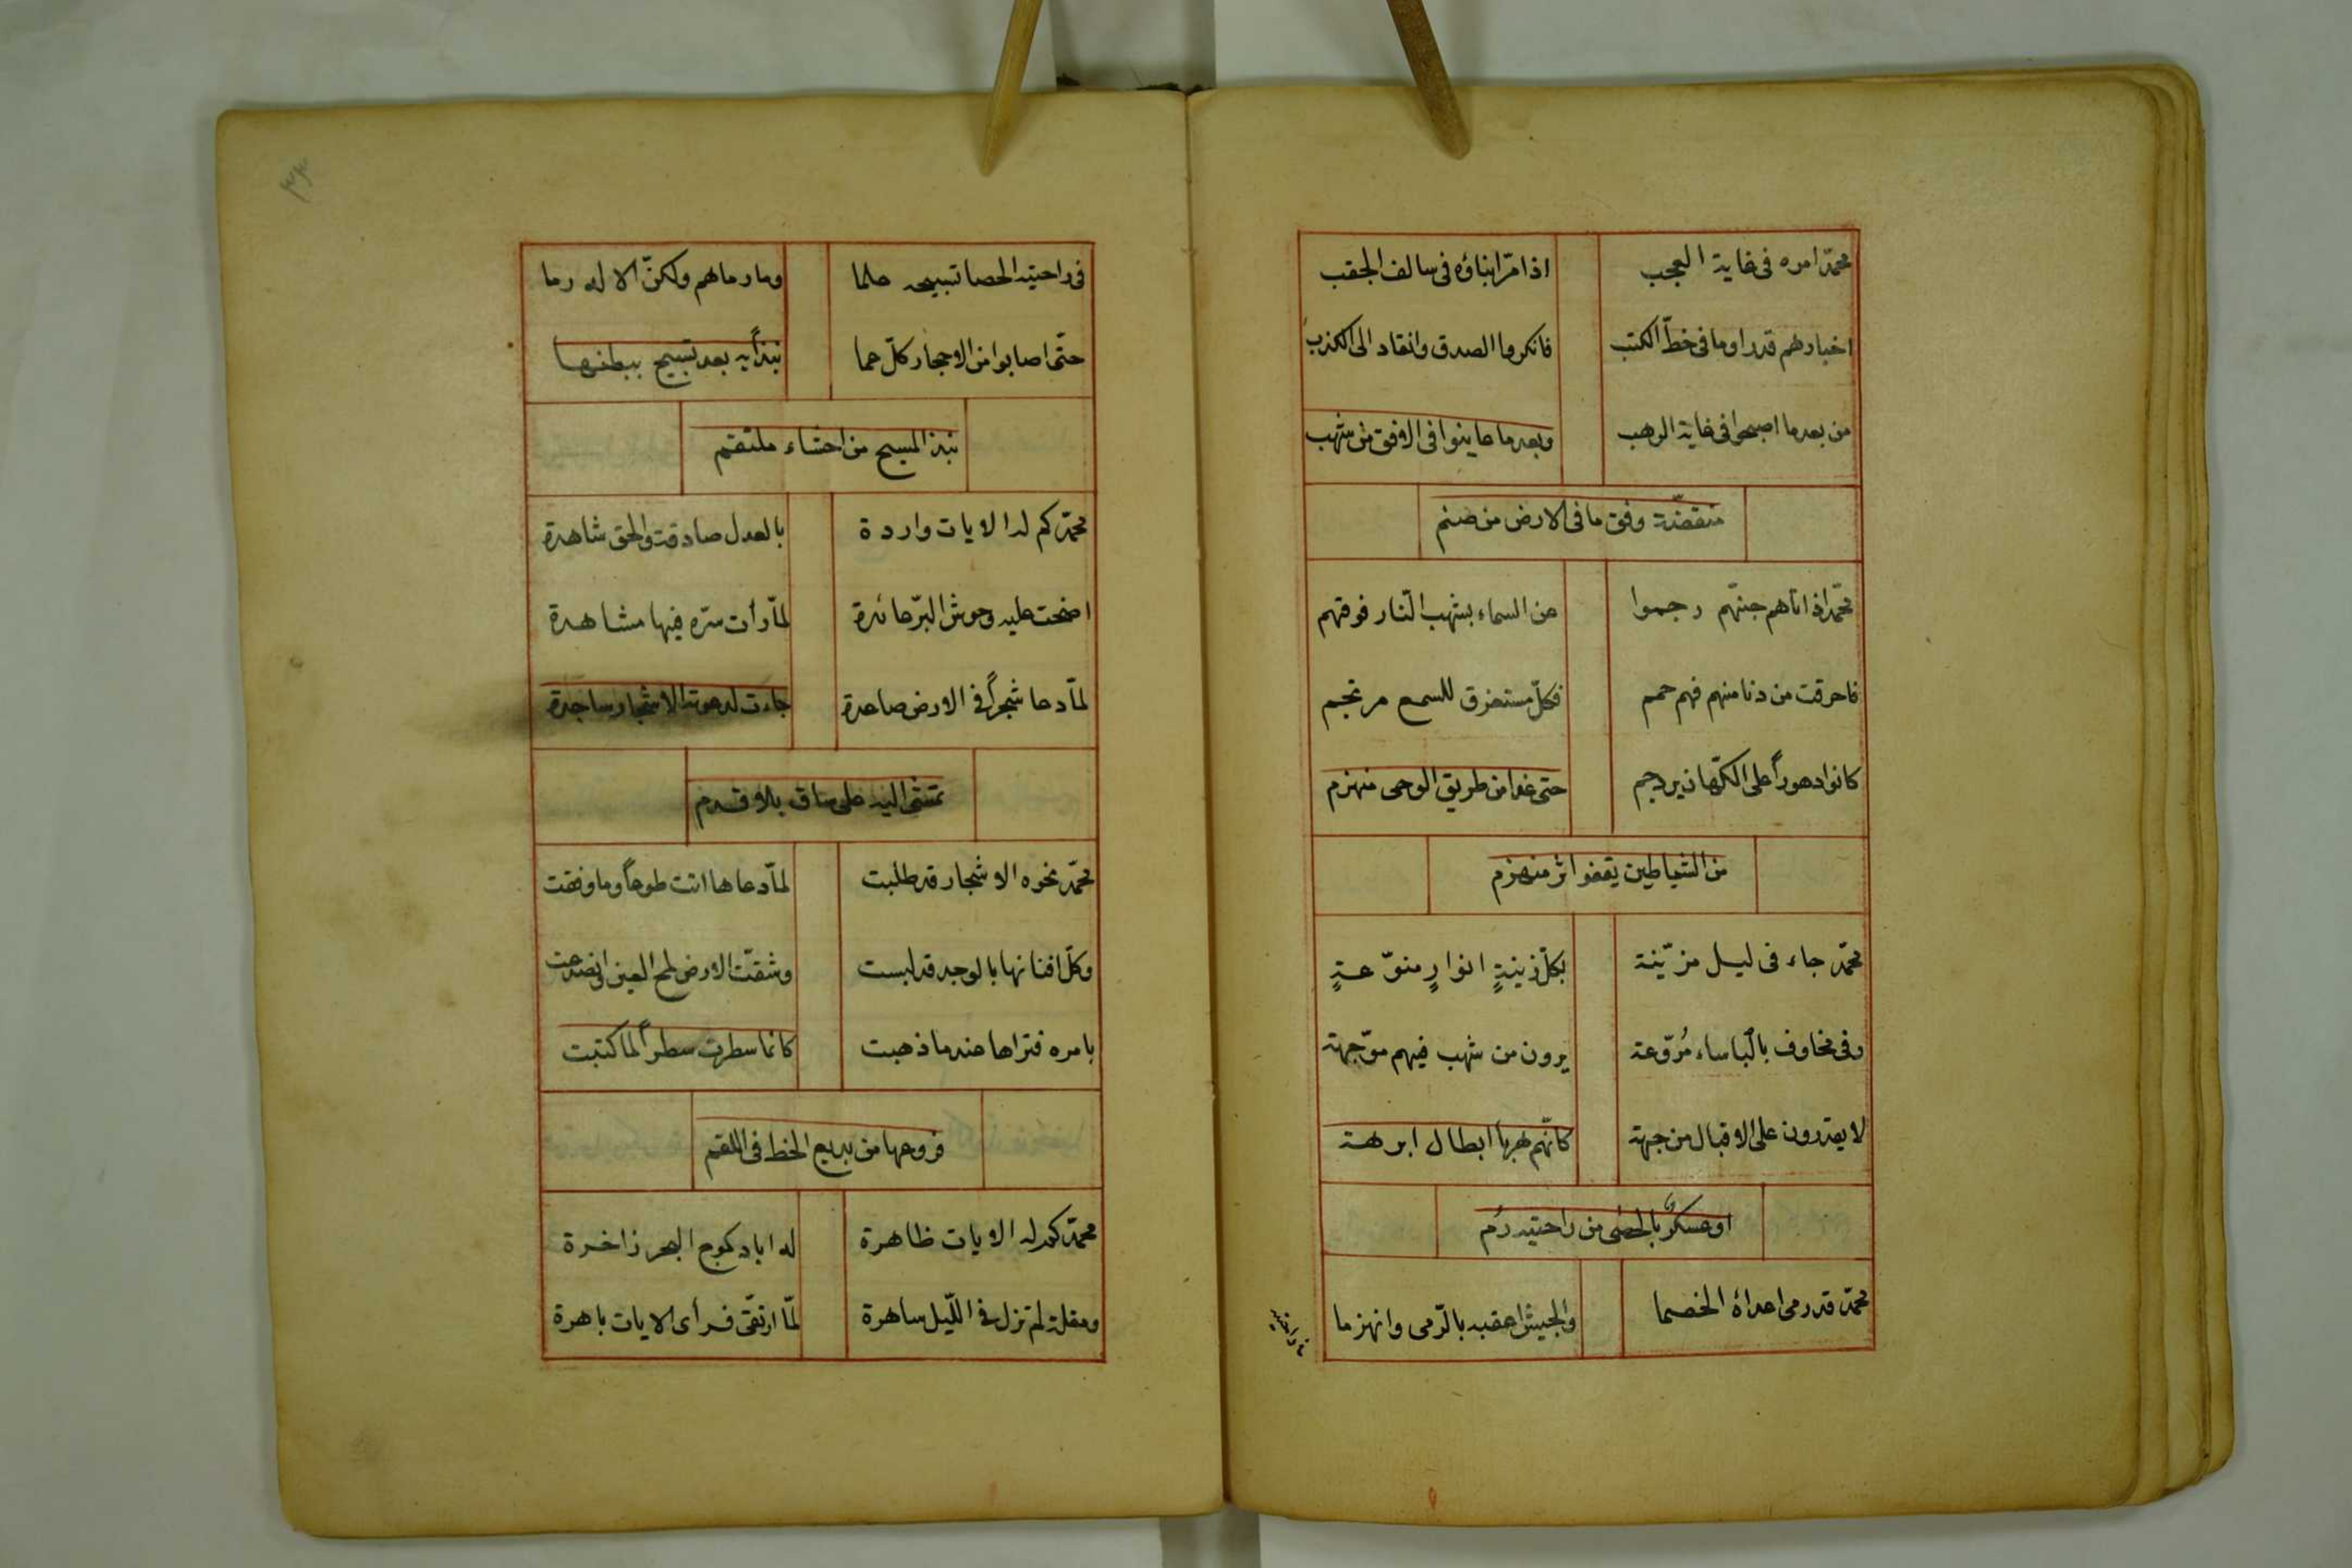 محمّد امره فى غاية العجب اذا مرّ ابناؤه فى سالف الحقب
اخبارهم قدرا وما فى خطّ الكتب فانكروا الصدق وانقاد الى الكذب
من بعد ما اصبحوا فى غاية الرهب وبعد ما عاينوا فى الافق من شهب
منقضّة وفق ما فى الارض من صنم
محمّد اذ اتاهم جنّهم رجموا من السماء بشهب النّار فوقهم
فاحرقت من دنا منهم فهم حمم فكلّ مسترق للسمع مرتجم
كانوا دهوراً على الكهّان حتى غدا من طريق الوحى منهزم
من الشياطين يقفوا اثر منهزم
محمّد جاء فى ليل مزيّنة بكلّ زينةٍ انوارٍ منوّعةٍ
وفى مخاوف بالباساء مُروّعة يرون من شهب فيهم موّجهة
لا يقدرون على الاقبال من جهة كانّهم هربا ابطال ابرهة
او عسكرٌ بالحصى من راحتيه رُم
محمّد قد رمى اعداءه الخصما والجيش اعقبه بالرّمى وانهزما
فى راحتيه
٣٣
فى راحتيه الحصا تسبيحه علما وما رماهم ولكنّ الاله رما
حتّى اصابوا من الاحجار كلّ حما نبذاً به بعد تسبيح ببطنهما
نبذ المسبح من احشاء ملتقم
محمّد كم له الايات واردة بالعدل صادقة والحق شاهدة
اضحت عليه وحوش البرّ عائدة لمّا رأت سرّه فيها مشاهدة
لمّا دعا شجراً فى الارض صاعدة جاءت لدعوته الاشجار ساجدة
تمشى اليه على ساق بلا قدم
محمّد نحوه الاشجار قد طلبت لمّا دعاها اتت طوعاً وما وقفت
وكلّ افنانها بالوجد قد لبست وشقّت الارض لمح العين انصدعت
بامره فتراها عندما ذهبت كانما سطرت سطراً لما كتبت
فروعها من بديع الخط فى اللقم
محمّد كم له الايات ظاهرة له اياد كموج البحر زاخرة
ومقلة لم تزل فى اللّيل ساهرة لمّا ارتقّى فرأى الايات باهرة